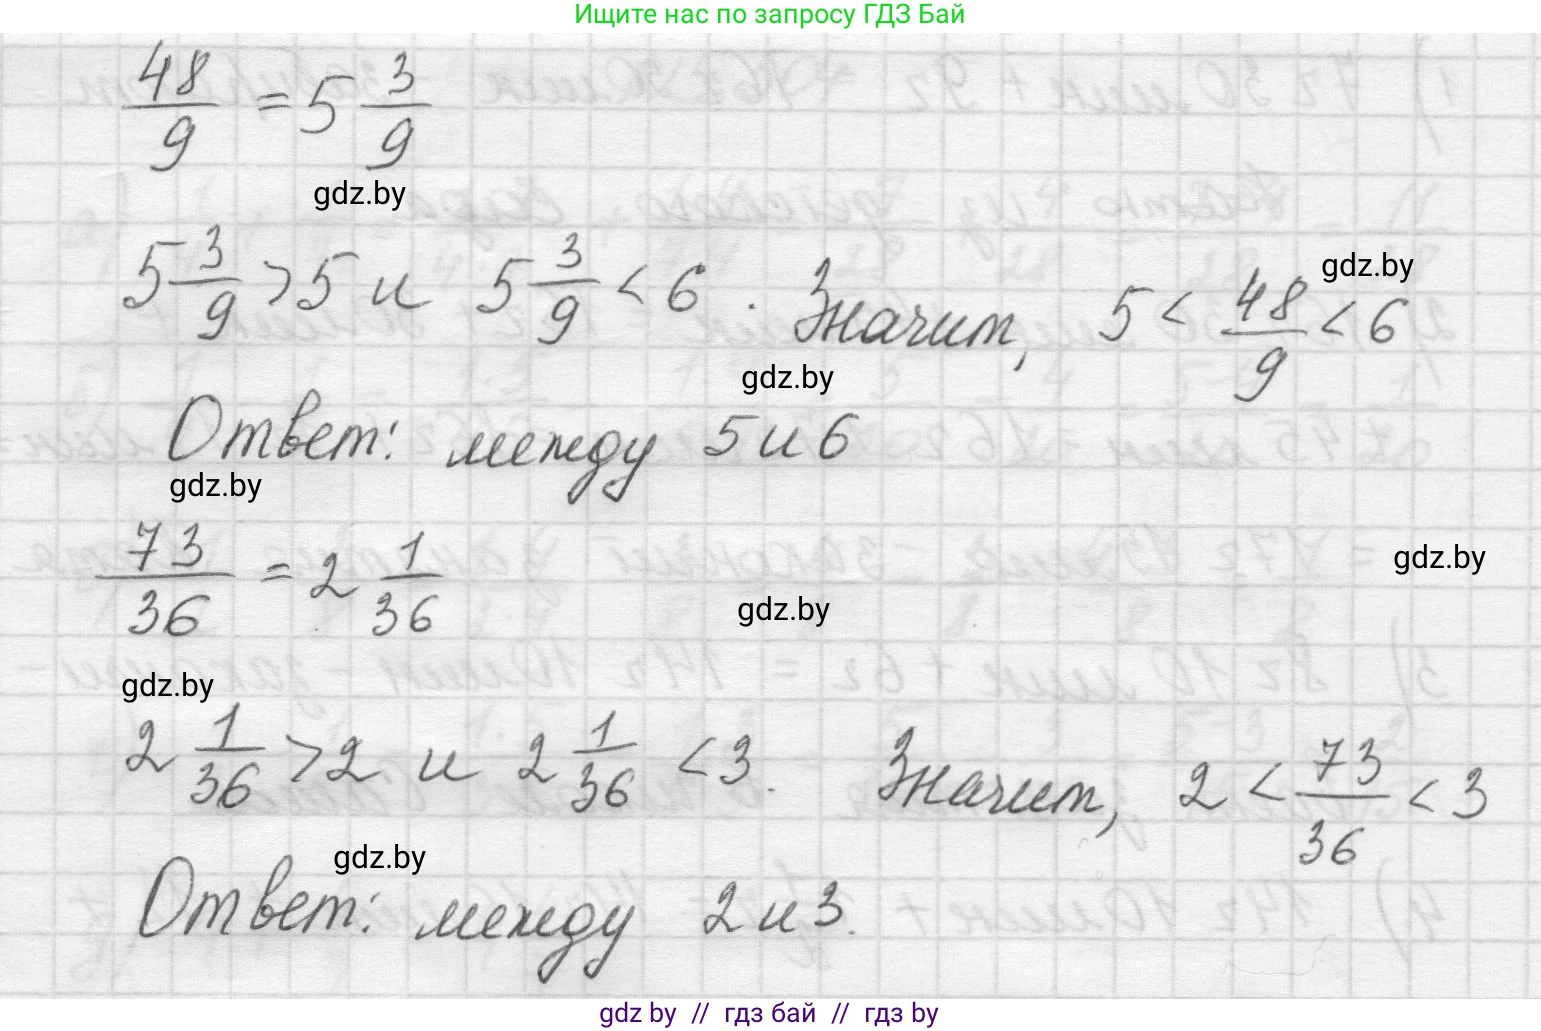 Ищите нас по запросу ГДЗ Бай
48/9 = 5 3/9
gdz.by
5 3/9 > 5 и 5 3/9 < 6. Значит, 5 < 48/9 < 6
gdz.by
gdz.by
Ответ: между 5 и 6
gdz.by
73/36 = 2 1/36
gdz.by
gdz.by
gdz.by
2 1/36 > 2 и 2 1/36 < 3. Значит, 2 < 73/36 < 3
gdz.by
Ответ: между 2 и 3.
gdz by // гдз бай // гдз by